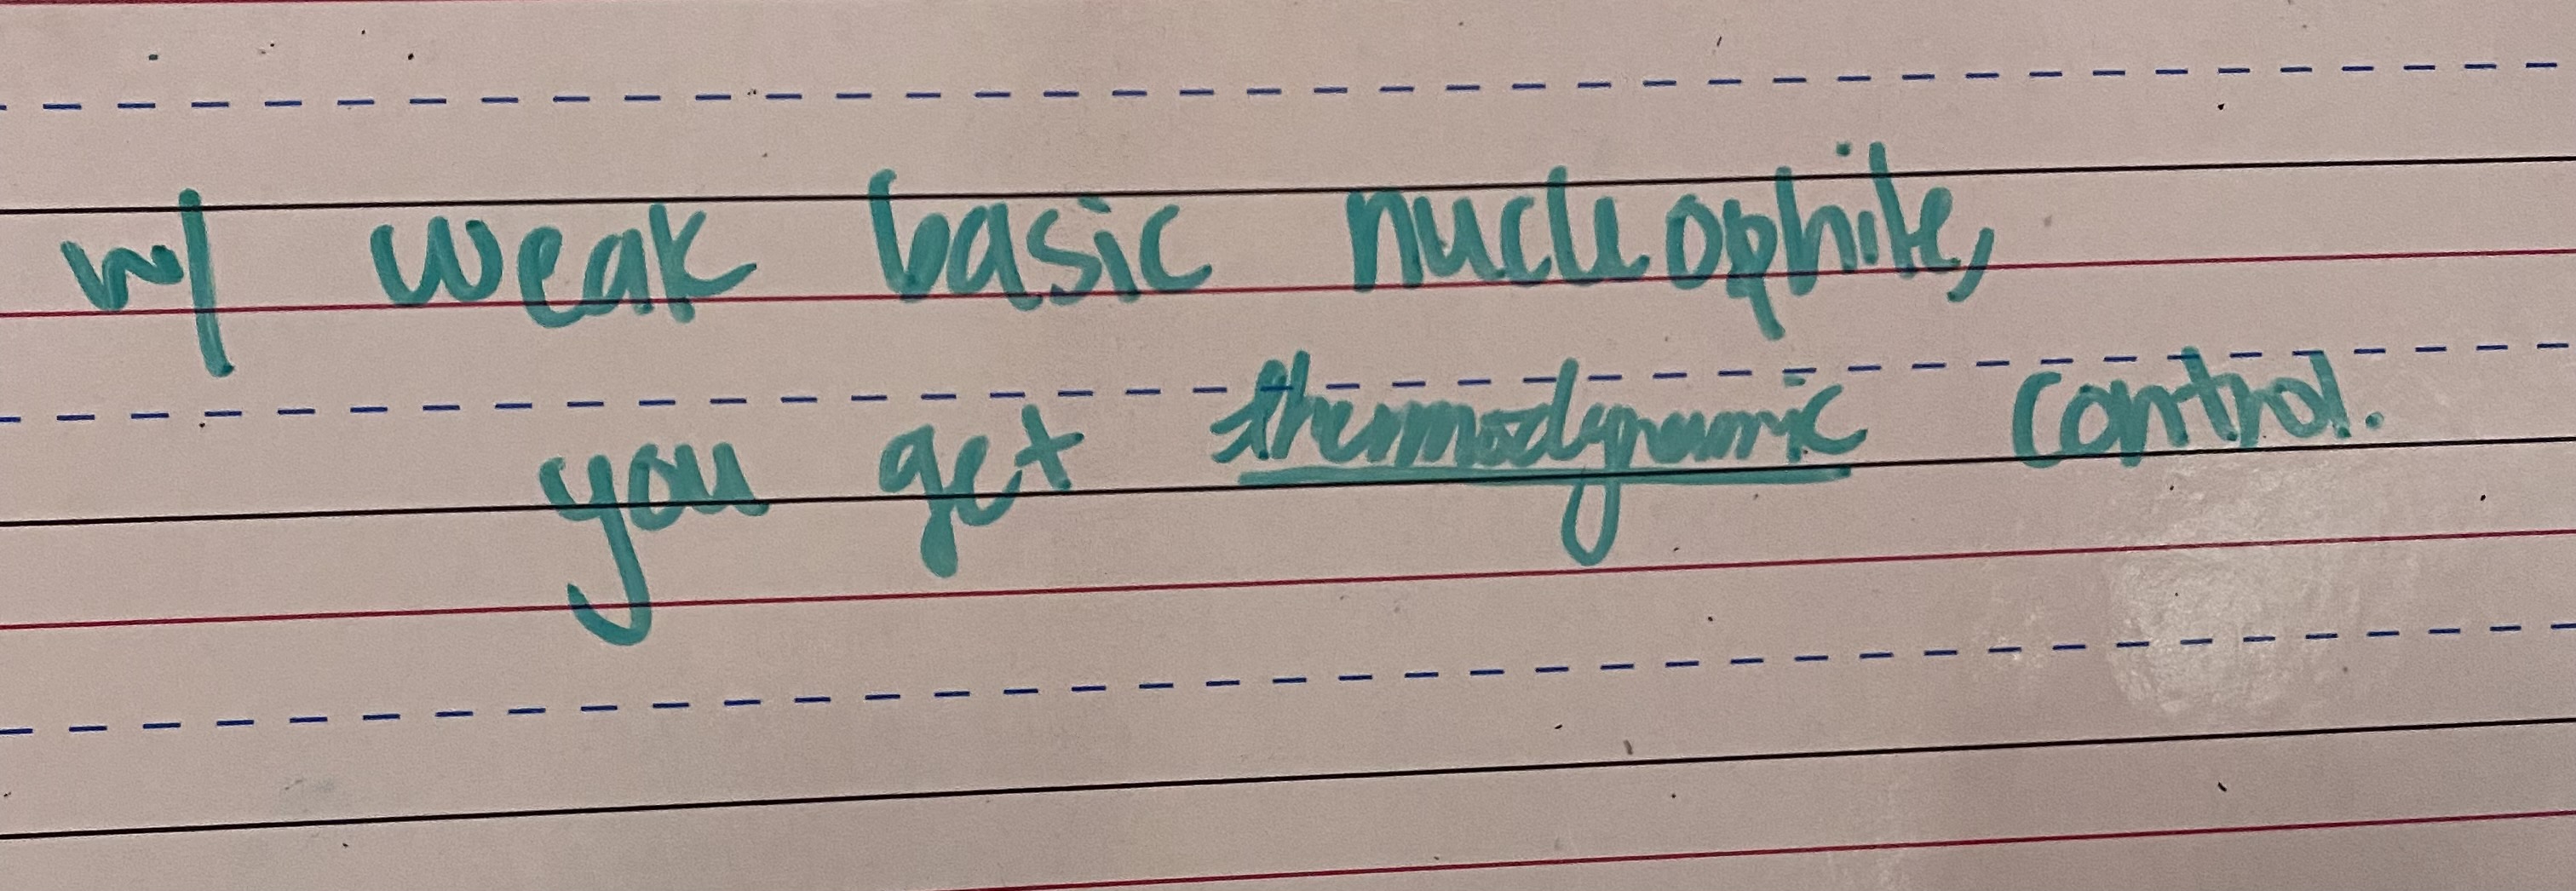 w/ weak basic nucleophile,
you get thermodynamic control.